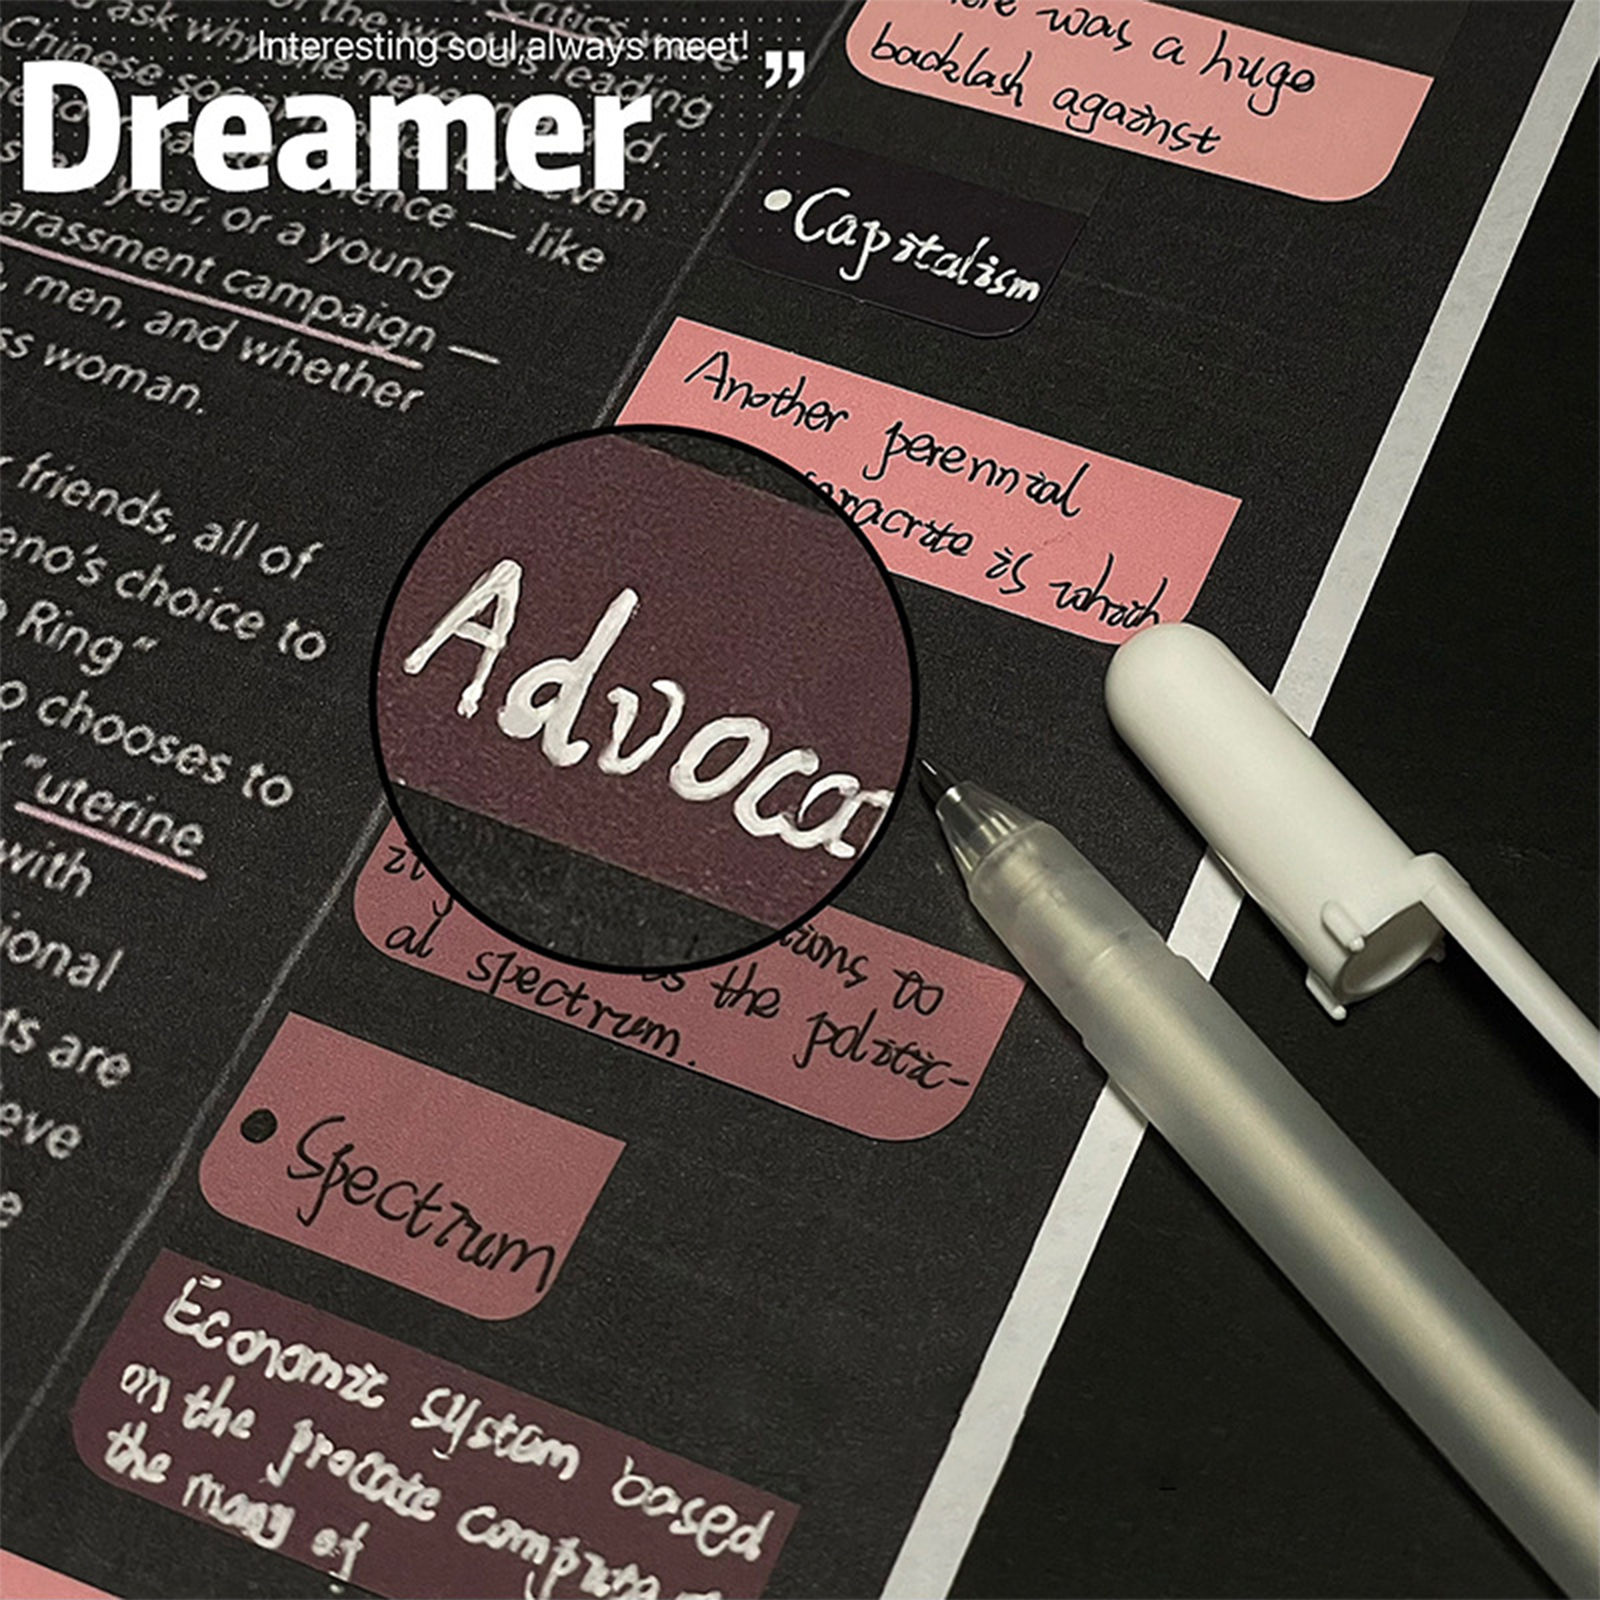 Interesting soul,always meet!
Dreamer
”
Critics
ask why
of the
Chinese social
never
leading
even
year, or a young
— like
arassment campaign —
men, and whether
ss woman.
friends, all of
eno's choice to
Ring"
o chooses to
"uterine
with
ional
ts are
eve
e
was a huge
backlash against
•Capitalism
Another perennial
is which
Advoca
to
as the politic-
al spectrum.
• Spectrum
Economic system based
on the
the many of